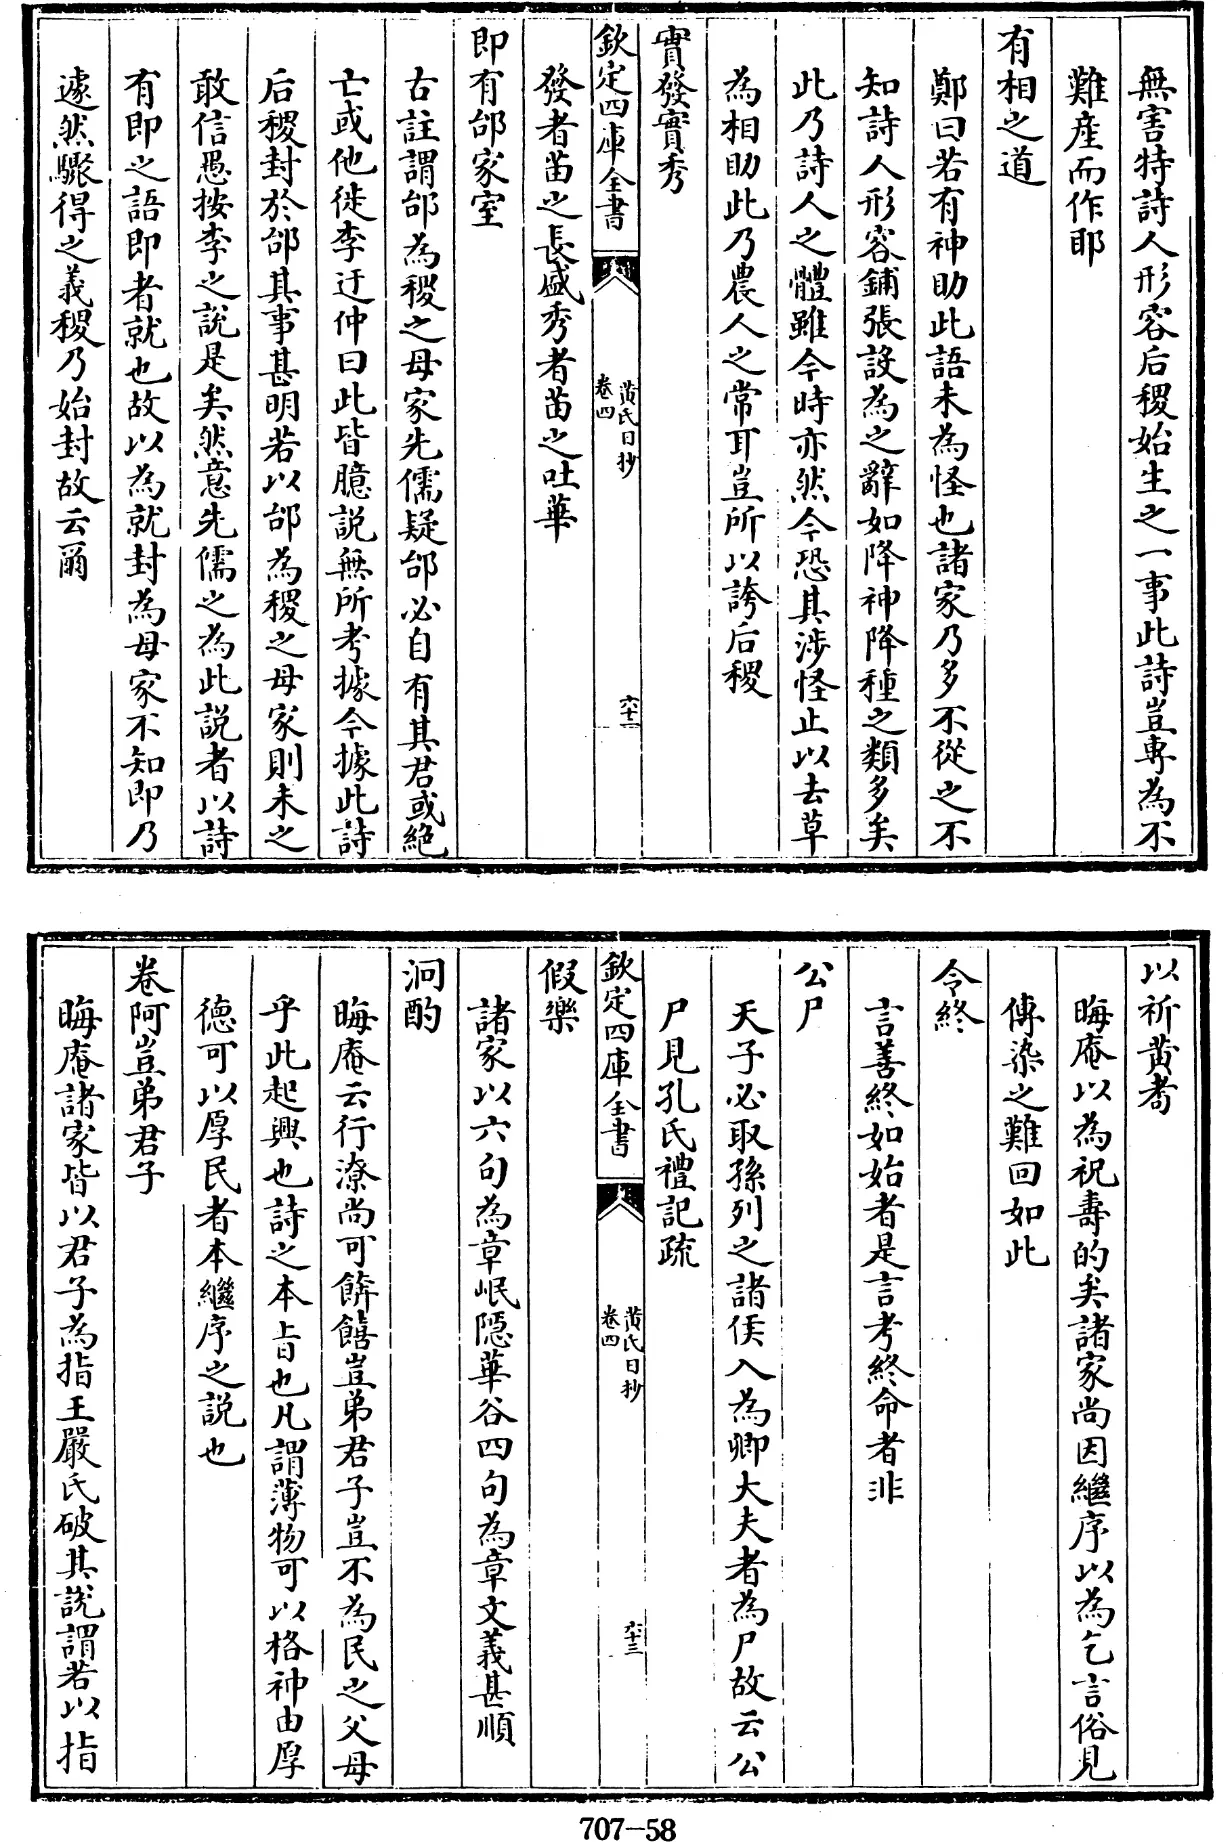 無害特詩人形容后稷始生之一事此詩豈專為不
難産而作耶
有相之道
鄭曰若有神助此語未為怪也諸家乃多不從之不
知詩人形容鋪張設為之辭如降神降種之類多矣
此乃詩人之體雖今時亦然今恐其涉怪止以去草
為相助此乃農人之常耳豈所以誇后稷
實發實秀
欽定四庫全書
黄氏日抄
卷四
六十二
發者苗之長盛秀者苗之吐華
即有邰家室
古註謂邰為稷之母家先儒疑邰必自有其君或絶
亡或他徙李迂仲曰此皆臆説無所考據今據此詩
后稷封於邰其事甚明若以邰為稷之母家則未之
敢信愚按李之説是矣然意先儒之為此説者以詩
有即之語即者就也故以為就封為母家不知即乃
遽然驟得之義稷乃始封故云爾
以祈黄耇
晦庵以為祝壽的矣諸家尚因繼序以為乞言俗見
傳染之難回如此
令終
言善終如始者是言考終命者非
公尸
天子必取孫列之諸侯入為卿大夫者為尸故云公
尸見孔氏禮記疏
欽定四庫全書
黄氏日抄
卷四
六十三
假樂
諸家以六句為章岷隠華谷四句為章文義甚順
泂酌
晦庵云行潦尚可餴饎豈弟君子豈不為民之父母
乎此起興也詩之本旨也凡謂薄物可以格神由厚
德可以厚民者本繼序之説也
卷阿豈弟君子
晦庵諸家皆以君子為指王嚴氏破其説謂若以指
707-58